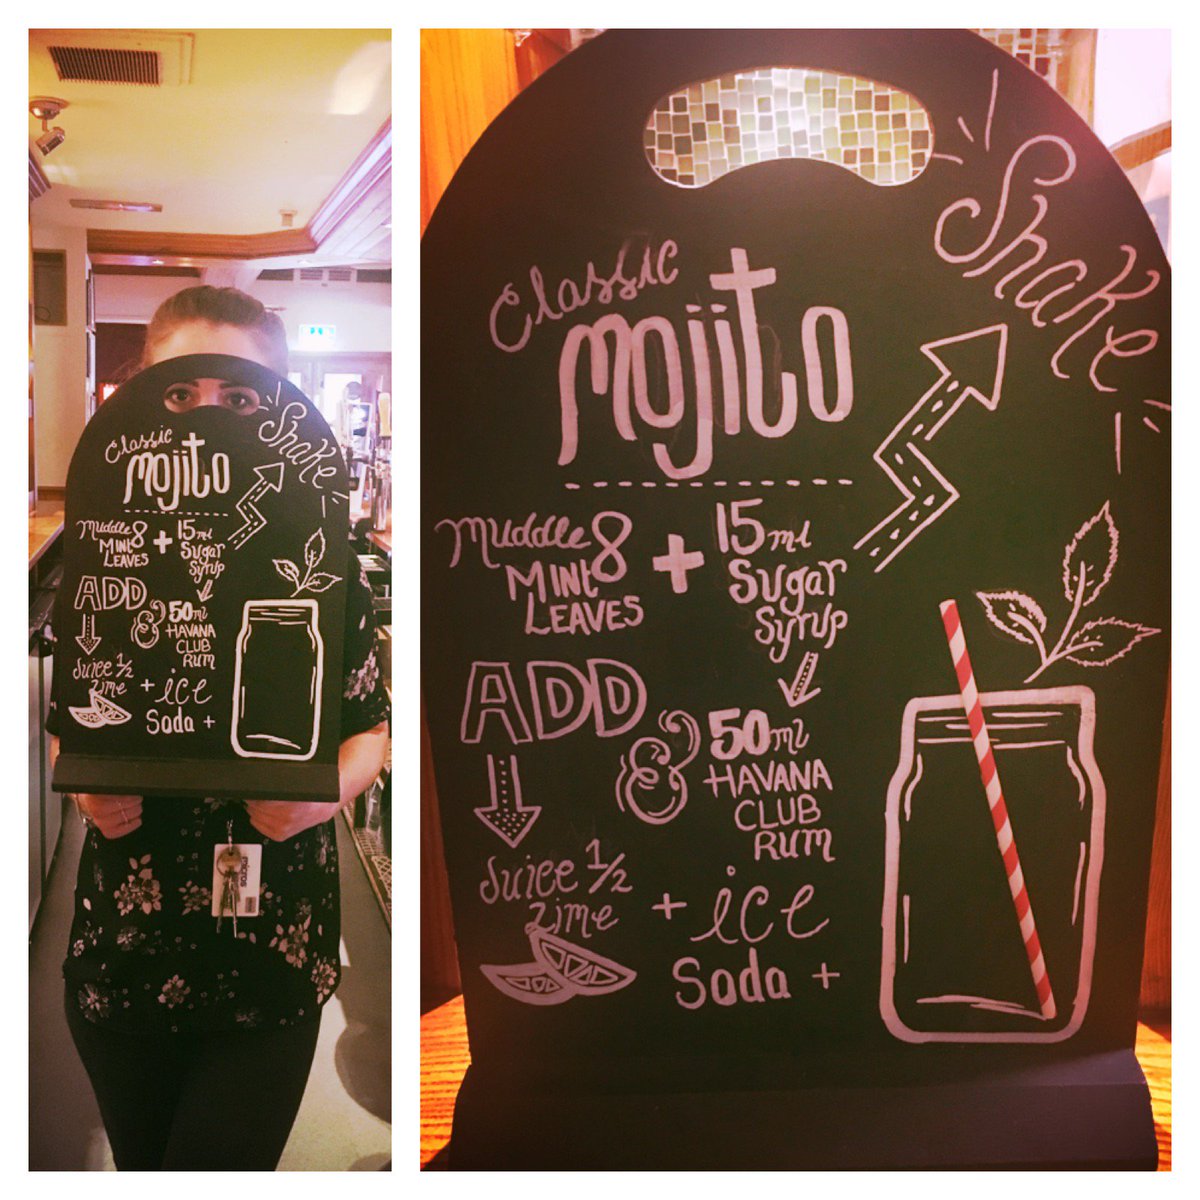 Classic
mojito
Shake
Muddle 8
MINT
LEAVES
+
15ml
Sugar
Syrup
ADD
& 50ml
HAVANA
CLUB
RUM
Juice 1/2
Lime
+ ice
Soda +
Classic
mojito
Shake
Muddle 8
MINT
LEAVES
+
15ml
Sugar
Syrup
ADD
& 50ml
HAVANA
CLUB
RUM
Juice 1/2
Lime
+ ice
Soda +
micros